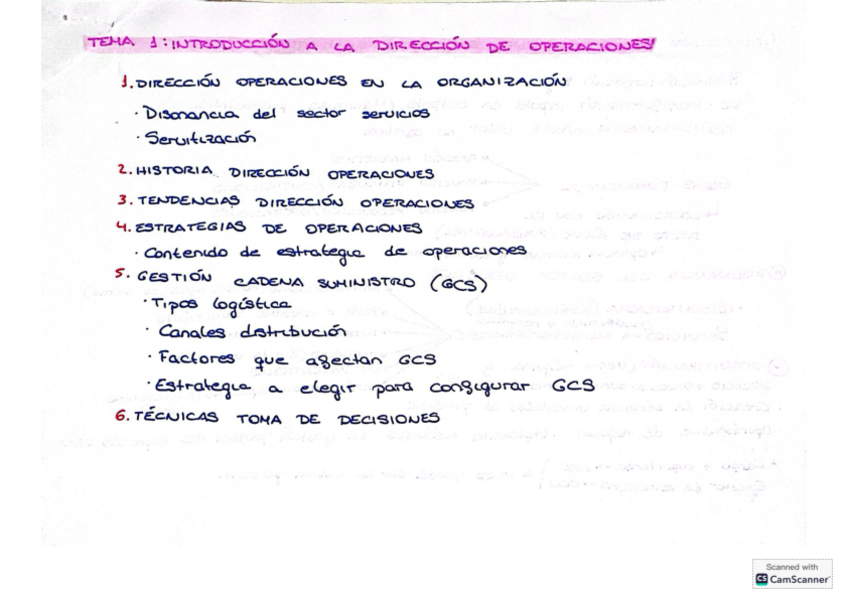 TEMA 1: INTRODUCCIÓN A LA DIRECCIÓN DE OPERACIONES
1. DIRECCIÓN OPERACIONES EN LA ORGANIZACIÓN
· Disonancia del sector servicios
· Servitización
2. HISTORIA DIRECCIÓN OPERACIONES
3. TENDENCIAS DIRECCIÓN OPERACIONES
4. ESTRATEGIAS DE OPERACIONES
· Contenido de estrategia de operaciones
5. GESTIÓN CADENA SUMINISTRO (GCS)
· Tipos logística
· Canales distribución
· Factores que afectan GCS
· Estrategia a elegir para configurar GCS
6. TÉCNICAS TOMA DE DECISIONES
Scanned with
CS CamScanner